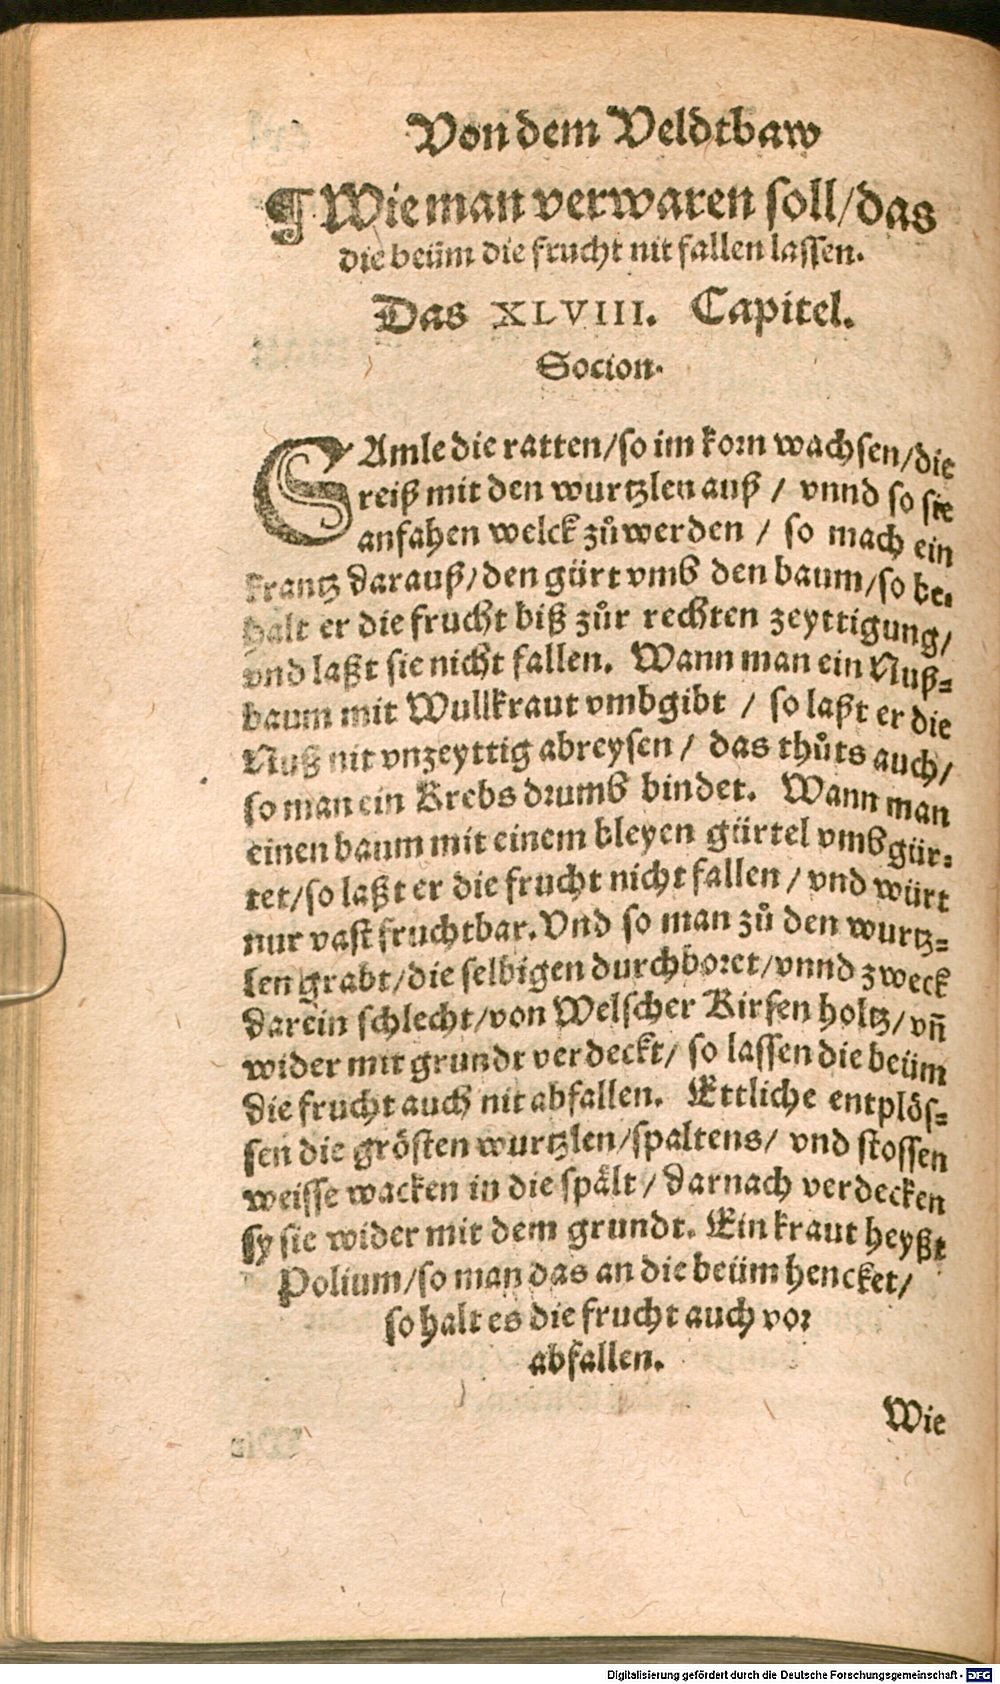 Von dem Veldtbaw
¶ Wie man verwaren soll/das
die beüm die frucht nit fallen lassen.
Das XLVIII. Capitel.
Socion.
SAmle die ratten/so im korn wachsen/die
reiß mit den wurtzlen auß / vnnd so sie
anfahen welck zůwerden / so mach ein
krantz darauß/den gürt vmb den baum/so be-
halt er die frucht biß zůr rechten zeyttigung/
vnd laßt sie nicht fallen. Wann man ein Nuß-
baum mit Wullkraut vmbgibt / so laßt er die
Nuß nit vnzeyttig abreysen / das thůts auch/
so man ein Krebs drumb bindet. Wann man
einen baum mit einem bleyen gürtel vmbgür-
tet/so laßt er die frucht nicht fallen / vnd würt
nur vast fruchtbar. Vnd so man zů den wurtz-
len grabt/die selbigen durchboret/vnnd zweck
darein schlecht/von Welscher Kirsen holtz/vñ
wider mit grundt verdeckt/ so lassen die beüm
die frucht auch nit abfallen. Ettliche entplös-
sen die grösten wurtzlen/spaltens/ vnd stossen
weisse wacken in die spält / darnach verdecken
sy sie wider mit dem grundt. Ein kraut heyßt
Polium/so man das an die beüm hencket/
so halt es die frucht auch vor
abfallen.
Wie
Digitalisierung gefördert durch die Deutsche Forschungsgemeinschaft - DFG